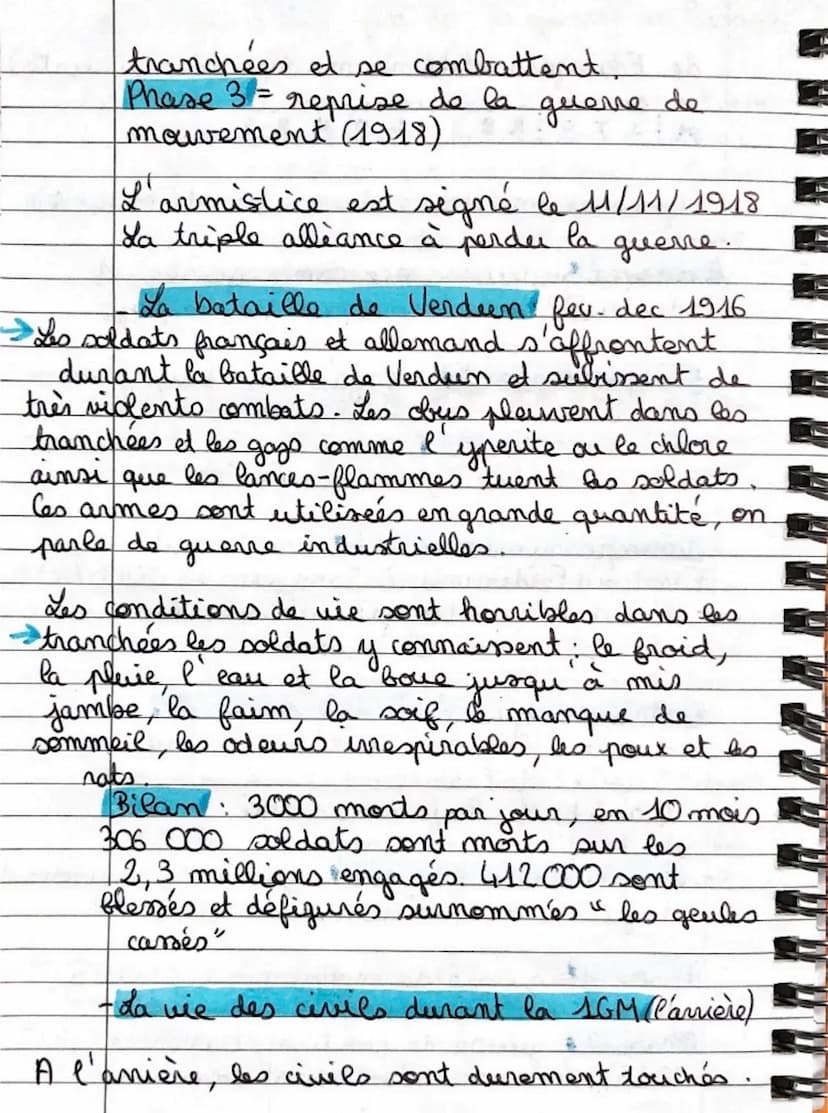 tranchées et se combattent.
Phase 3 = reprise de la guerre de
mouvement (1918)
L'armistice est signé le 11/11/1918
La triple alliance à perdu la guerre.
- La bataille de Verdun fev. dec 1916
→ Les soldats français et allemand s'affrontent
durant la bataille de Verdun et subissent de
très violents combats. Les obus pleuvent dans les
tranchées et les gags comme l'yperite ou le chlore
ainsi que les lances-flammes tuent les soldats.
Ces armes sont utiliseés en grande quantité, on
parle de guerre industrielles.
Les conditions de vie sont horribles dans les
→ tranchées les soldats y connaissent : le froid,
la pluie, l'eau et la boue jusqu'à mis
jambe, la faim, la soif, le manque de
sommeil, les odeurs irrespirables, les poux et les
rats.
Bilan : 3000 morts par jour, en 10 mois
306 000 soldats sont morts sur les
2,3 millions engagés. 412 000 sont
blessés et défigurés surnommés "les geules
cassés"
- La vie des civils durant la 1GM (l'arrière)
A l'arrière, les civils sont durement touchés.